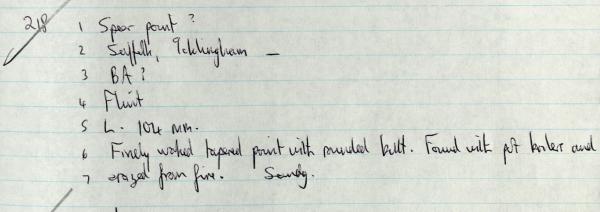 218 1 Spear point ?
2 Suffolk, Icklingham —
3 BA ?
4 Flint
5 L. 104 mm.
6 Finely worked tapered point with rounded butt. Found with pot boiler and
7 from fire. Sandy.